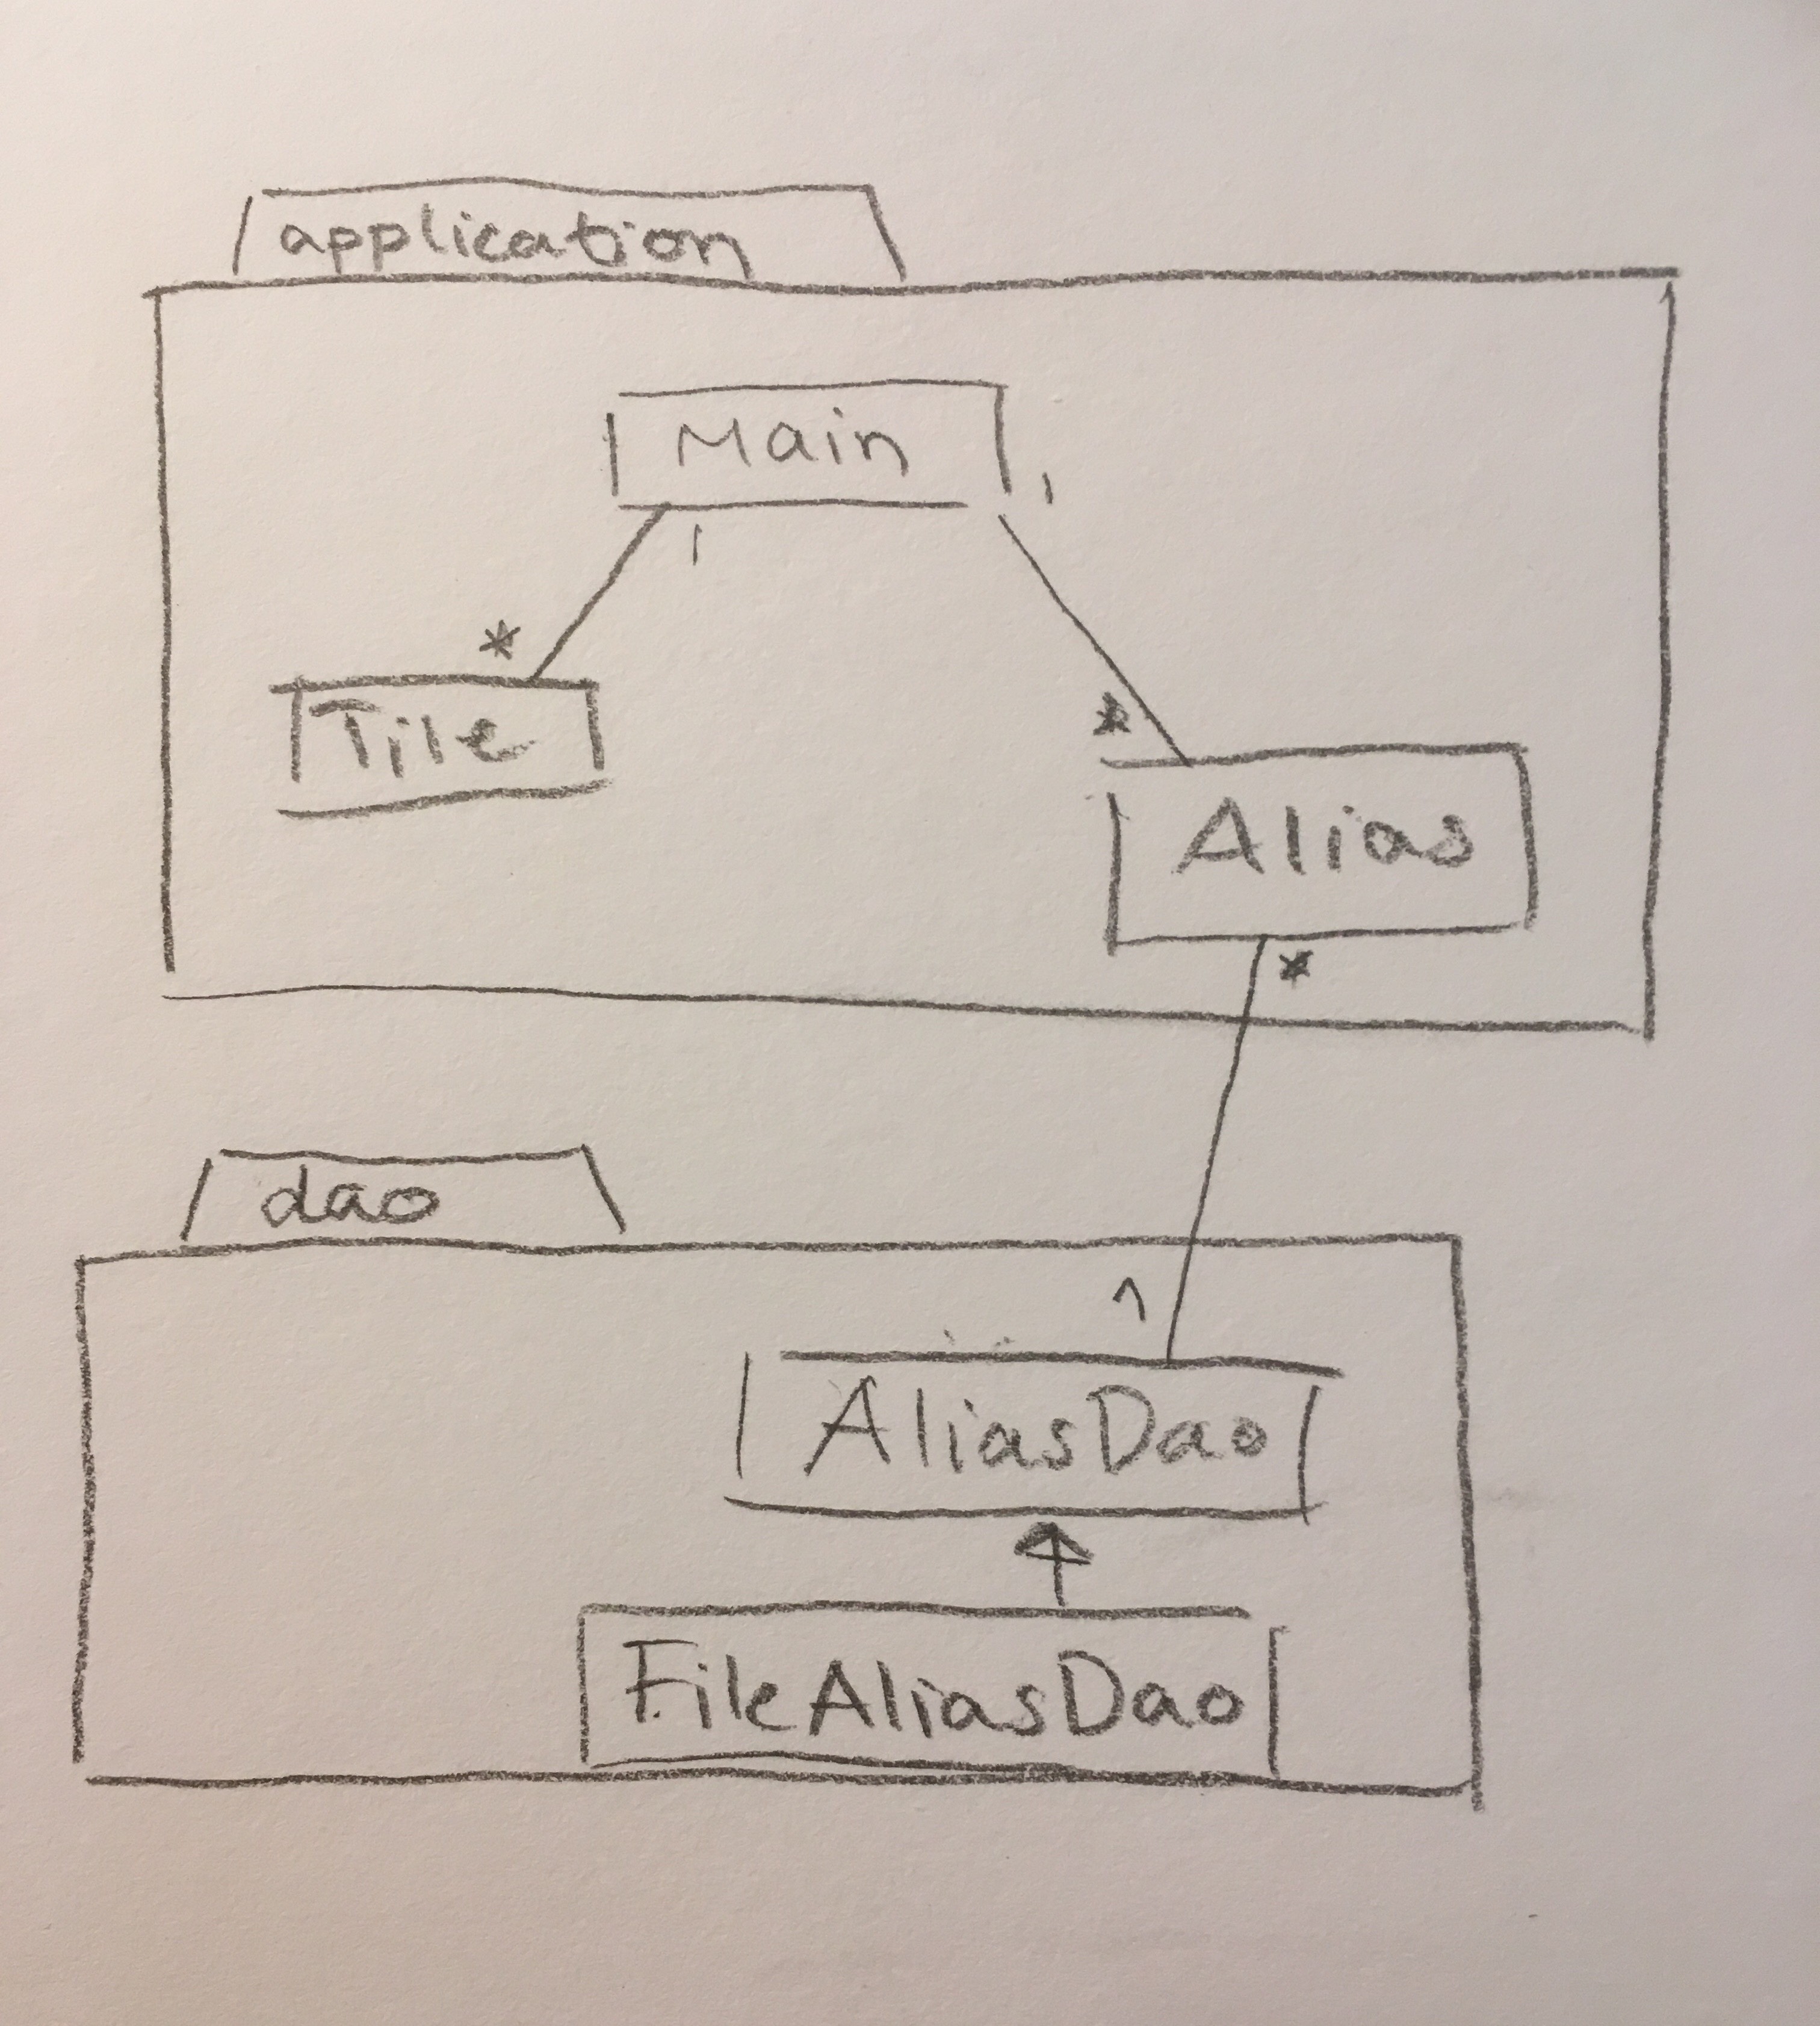 application
Main
1
1
*
Tile
*
Alias
*
dao
1
AliasDao
FileAliasDao